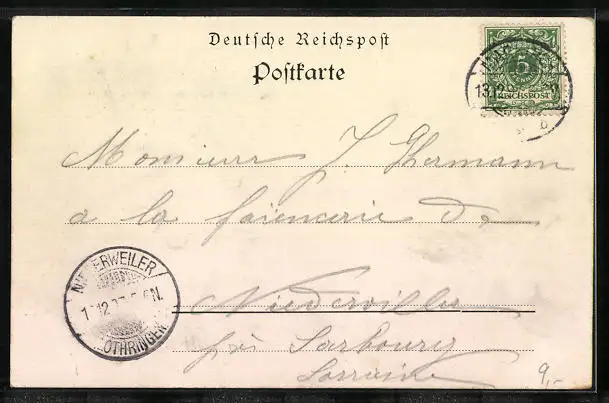 Deutsche Reichspost
Postkarte
5
REICHSPOST
13.12.97
Monsieur J. Ghermann
a la faiencerie de
Niederviller
près Sarbourg
Lorraine
NIEDERWEILER
LOTHRINGEN
9,-